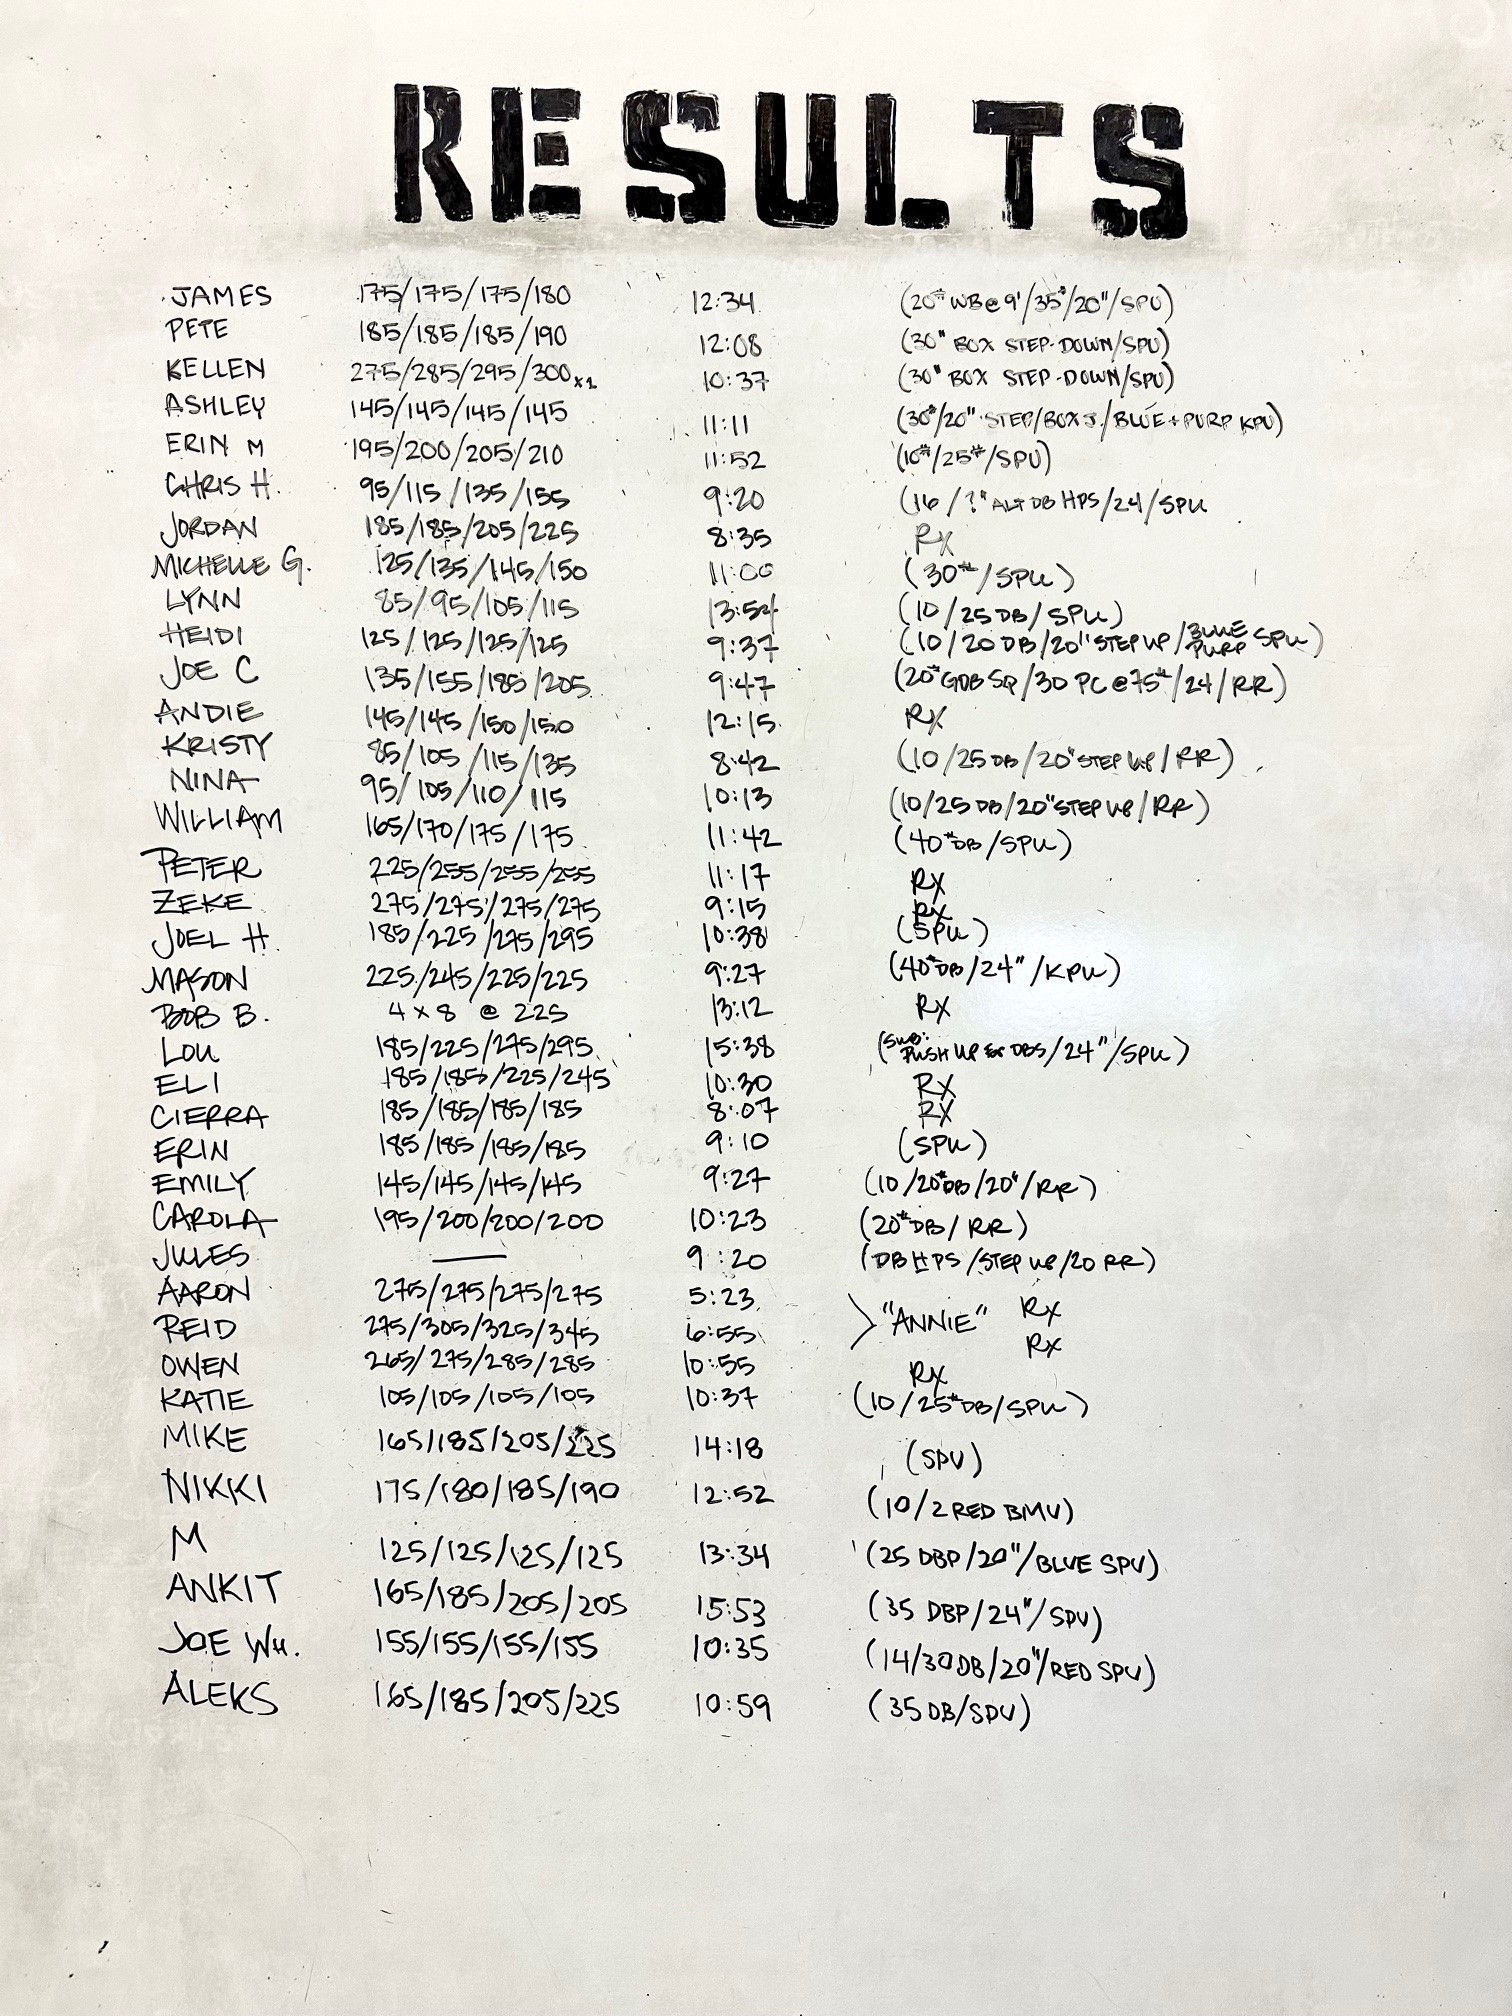 RESULTS
JAMES 175/175/175/180 12:34 (20# WB@9'/35#/20"/SPU)
PETE 185/185/185/190 12:08 (30" BOX STEP-DOWN/SPU)
KELLEN 275/285/295/300x1 10:37 (30" BOX STEP-DOWN/SPU)
ASHLEY 145/145/145/145 11:11 (30#/20" STEP/BOX J./BLUE+PURP KPU)
ERIN M 195/200/205/210 11:52 (10#/25#/SPU)
CHRIS H. 95/115/135/155 9:20 (16/?" ALT DB HPS/24/SPU
JORDAN 185/185/205/225 8:35 RX
MICHELLE G. 125/135/145/150 11:00 (30#/SPU)
LYNN 85/95/105/115 13:54 (10/25 DB/SPU)
HEIDI 125/125/125/125 9:37 (10/20 DB/20" STEP UP/BLUE PURP SPU)
JOE C 135/155/185/205 9:47 (20# GDB SQ/30 PC @75#/24/RR)
ANDIE 145/145/150/150 12:15 RX
KRISTY 85/105/115/135 8:42 (10/25 DB/20" STEP UP/RR)
NINA 95/105/110/115 10:13 (10/25 DB/20" STEP UP/RR)
WILLIAM 165/170/175/175 11:42 (40# DB/SPU)
PETER 225/255/255/255 11:17 RX
ZEKE 275/275/275/275 9:15 RX
JOEL H. 185/225/275/295 10:38 (SPU)
MASON 225/245/225/225 9:27 (40# DB/24"/KPU)
BOB B. 4x8 @ 225 13:12 RX
LOU 185/225/275/295 15:38 (SUB: PUSH UP for DBS/24"/SPU)
ELI 185/185/225/245 10:30 RX
CIERRA 185/185/185/185 8:07 RX
ERIN 185/185/185/185 9:10 (SPU)
EMILY 145/145/145/145 9:27 (10/20# DB/20"/RR)
CAROLA 195/200/200/200 10:23 (20# DB/RR)
JULES — 9:20 (DB HPS/STEP UP/20 RR)
AARON 275/275/275/275 5:23 > "ANNIE" RX
REID 275/305/325/345 6:55 RX
OWEN 265/275/285/285 10:55 RX
KATIE 105/105/105/105 10:37 (10/25# DB/SPU)
MIKE 165/185/205/225 14:18 (SPU)
NIKKI 175/180/185/190 12:52 (10/2 RED BMU)
M 125/125/125/125 13:34 (25 DBP/20"/BLUE SPU)
ANKIT 165/185/205/205 15:53 (35 DBP/24"/SPU)
JOE WH. 155/155/155/155 10:35 (14/30DB/20"/RED SPU)
ALEKS 165/185/205/225 10:59 (35 DB/SPU)